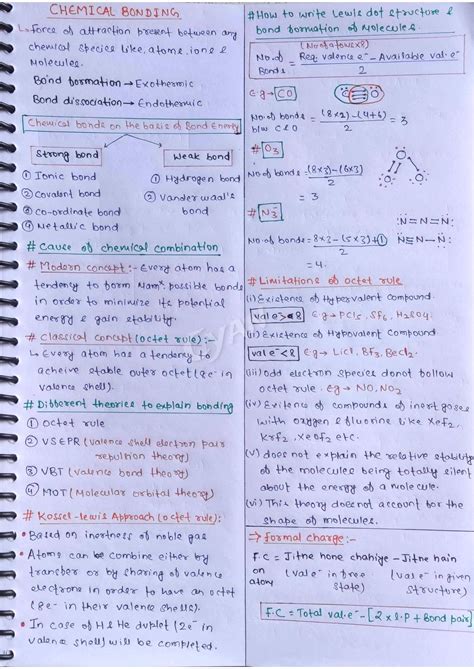 CHEMICAL BONDING
↳ Force of attraction present between any
chemical species like, atoms, ions &
Molecules.
Bond formation → Exothermic
Bond dissociation → Endothermic
Chemical bonds on the basis of Bond Energy
Strong bond
① Ionic bond
② Covalent bond
③ Co-ordinate bond
④ Metallic bond
Weak bond
① Hydrogen bond
② Vander waal's
bond
# Cause of chemical combination
# Modern concept:- Every atom has a
tendency to form Namˣ possible bonds
in order to minimize its potential
energy & gain stability.
# Classical concept (octet rule):-
↳ Every atom has a tendency to
acheive stable outer octet (8e⁻ in
valence shell).
# Different theories to explain bonding
① Octet rule
② VSEPR (valence shell electron pair
repultion theory)
③ VBT (valence bond theory)
④ MOT (Molecular orbital theory)
# Kossel-lewis Approach (octet rule):
• Based on inertness of noble gas
• Atoms can be combine either by
transfer or by sharing of valence
electrons in order to have an octet
(8e⁻ in their valence shells).
• In case of H & He duplet (2e⁻ in
valence shell) will be completed.
# How to write Lewis dot structure &
bond formation of Molecules.
(No. of atoms x 8)
No. of Bonds = Req. valence e⁻ - Available val. e⁻ / 2
E.g → CO
C O
No. of bonds b/w C & O = (8x2) - (4+6) / 2 = 3
# O₃
No. of bonds = (8x3) - (6x3) / 2
= 3
O O O
# N₃⁻
No. of bonds = 8x3 - (5x3) + ① / 2
= 4.
N=N=N:
N≡N-N:
# Limitations of octet rule
(i) Existence of Hypervalent Compound
val e⁻ > 8 E.g → PCl₅, SF₆, H₂SO₄.
(ii) Existence of Hypovalent Compound.
val e⁻ < 8 E.g → LiCl, BF₃, BeCl₂.
(iii) odd electron species donot follow
octet rule. Eg → NO, NO₂
(iv) Exitence of compounds of inert gases
with oxygen & fluorine like XeF₂,
KrF₂, XeOF₂ etc.
(v) does not explain the relative stability
of the molecules being totally silent
about the energy of a molecule.
(vi) This theory does not account for the
shape of molecules.
⇒ Formal charge:-
F.C on atom = Jitne hone chahiye - Jitne hain
(val e⁻ in free state) (val e⁻ in given structure)
F.C = Total val. e⁻ - [2 x l.P + Bond pair]